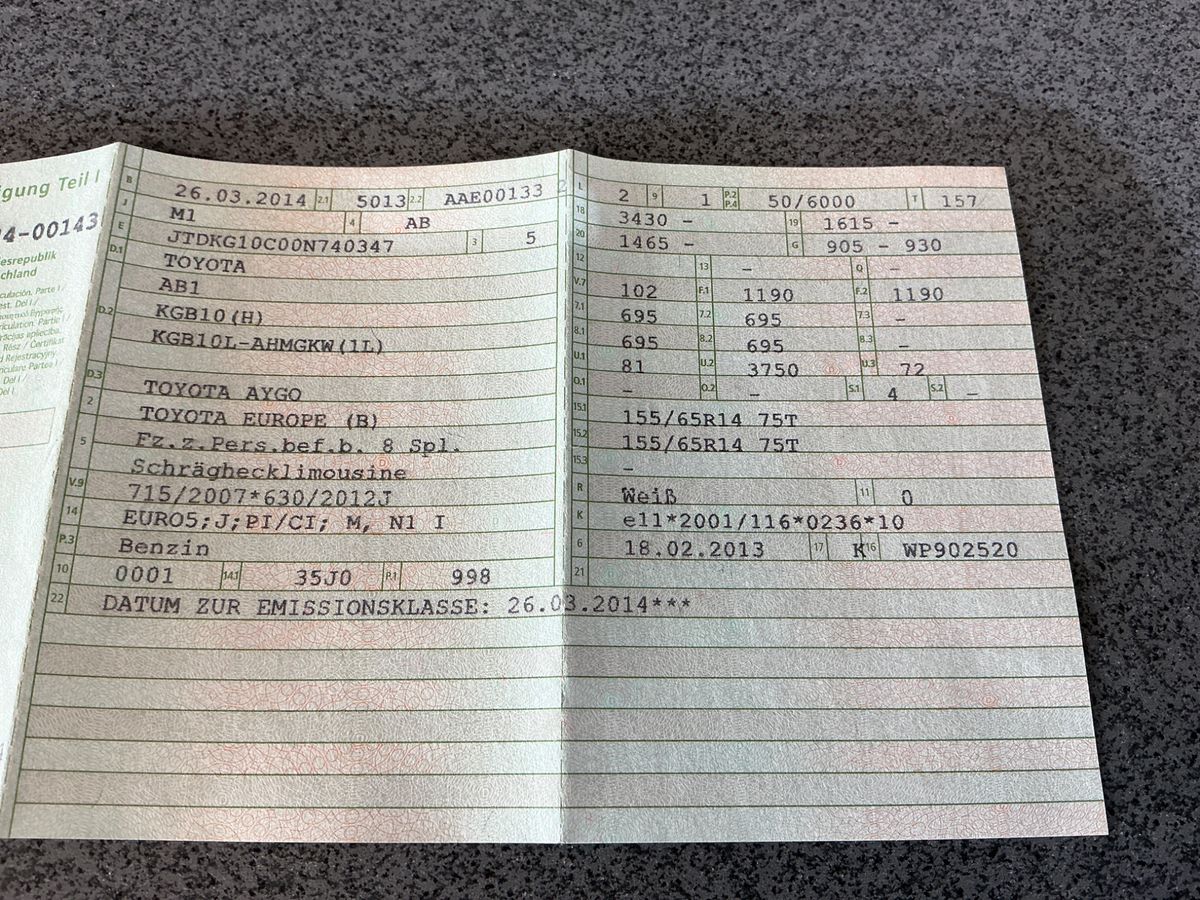 igung Teil I
4-00143
esrepublik
chland
B 26.03.2014 2.1 5013 2.2 AAE00133 2
J M1 4 AB
E JTDKG10C00N740347 3 5
D.1 TOYOTA
AB1
D.2 KGB10(H)
KGB10L-AHMGKW(1L)
D.3 TOYOTA AYGO
2 TOYOTA EUROPE (B)
5 Fz.z.Pers.bef.b. 8 Spl.
Schräghecklimousine
V.9 715/2007*630/2012J
14 EURO5;J;PI/CI; M, N1 I
P.3 Benzin
10 0001 14.1 35J0 P.1 998
22 DATUM ZUR EMISSIONSKLASSE: 26.03.2014***
L 2 9 1 P.2 P.4 50/6000 T 157
18 3430 - 19 1615 -
20 1465 - G 905 - 930
12 13 - Q -
V.7 102 F.1 1190 F.2 1190
7.1 695 7.2 695 7.3 -
8.1 695 8.2 695 8.3 -
U.1 81 U.2 3750 U.3 72
O.1 - O.2 - S.1 4 S.2 -
15.1 155/65R14 75T
15.2 155/65R14 75T
15.3 -
R Weiß 11 0
K e11*2001/116*0236*10
6 18.02.2013 17 K 16 WP902520
21